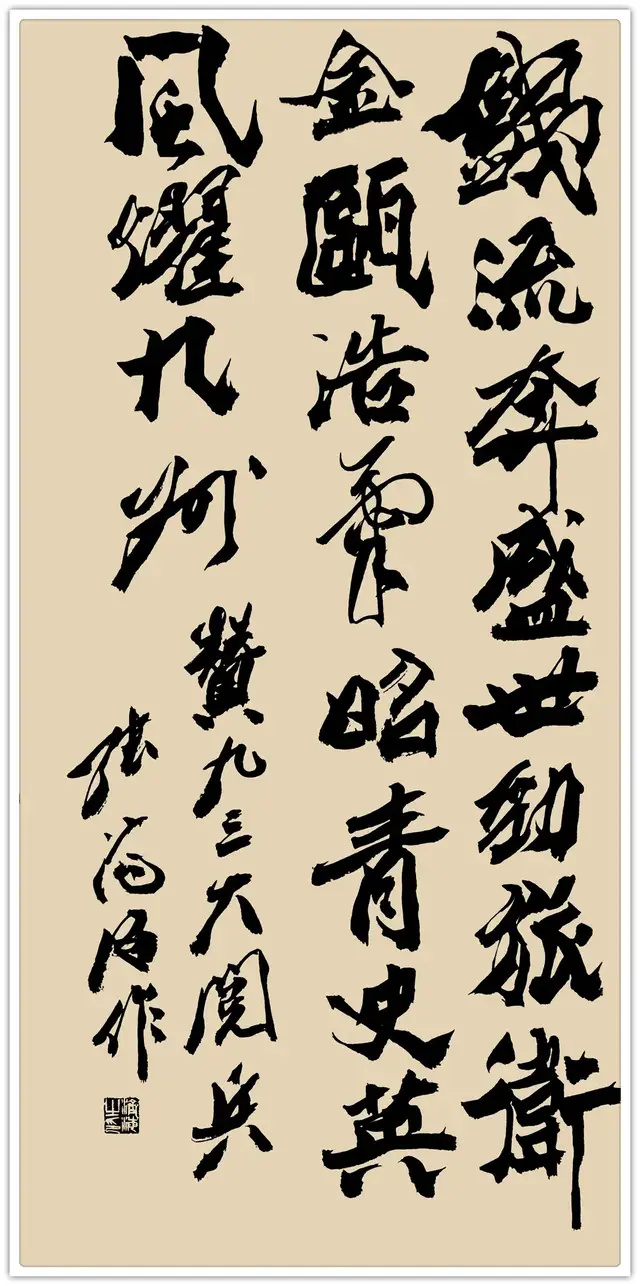 鐵流奔盛世勁旅衛
金甌浩氣昭青史英
風耀九州
贊九三大閱兵
张作